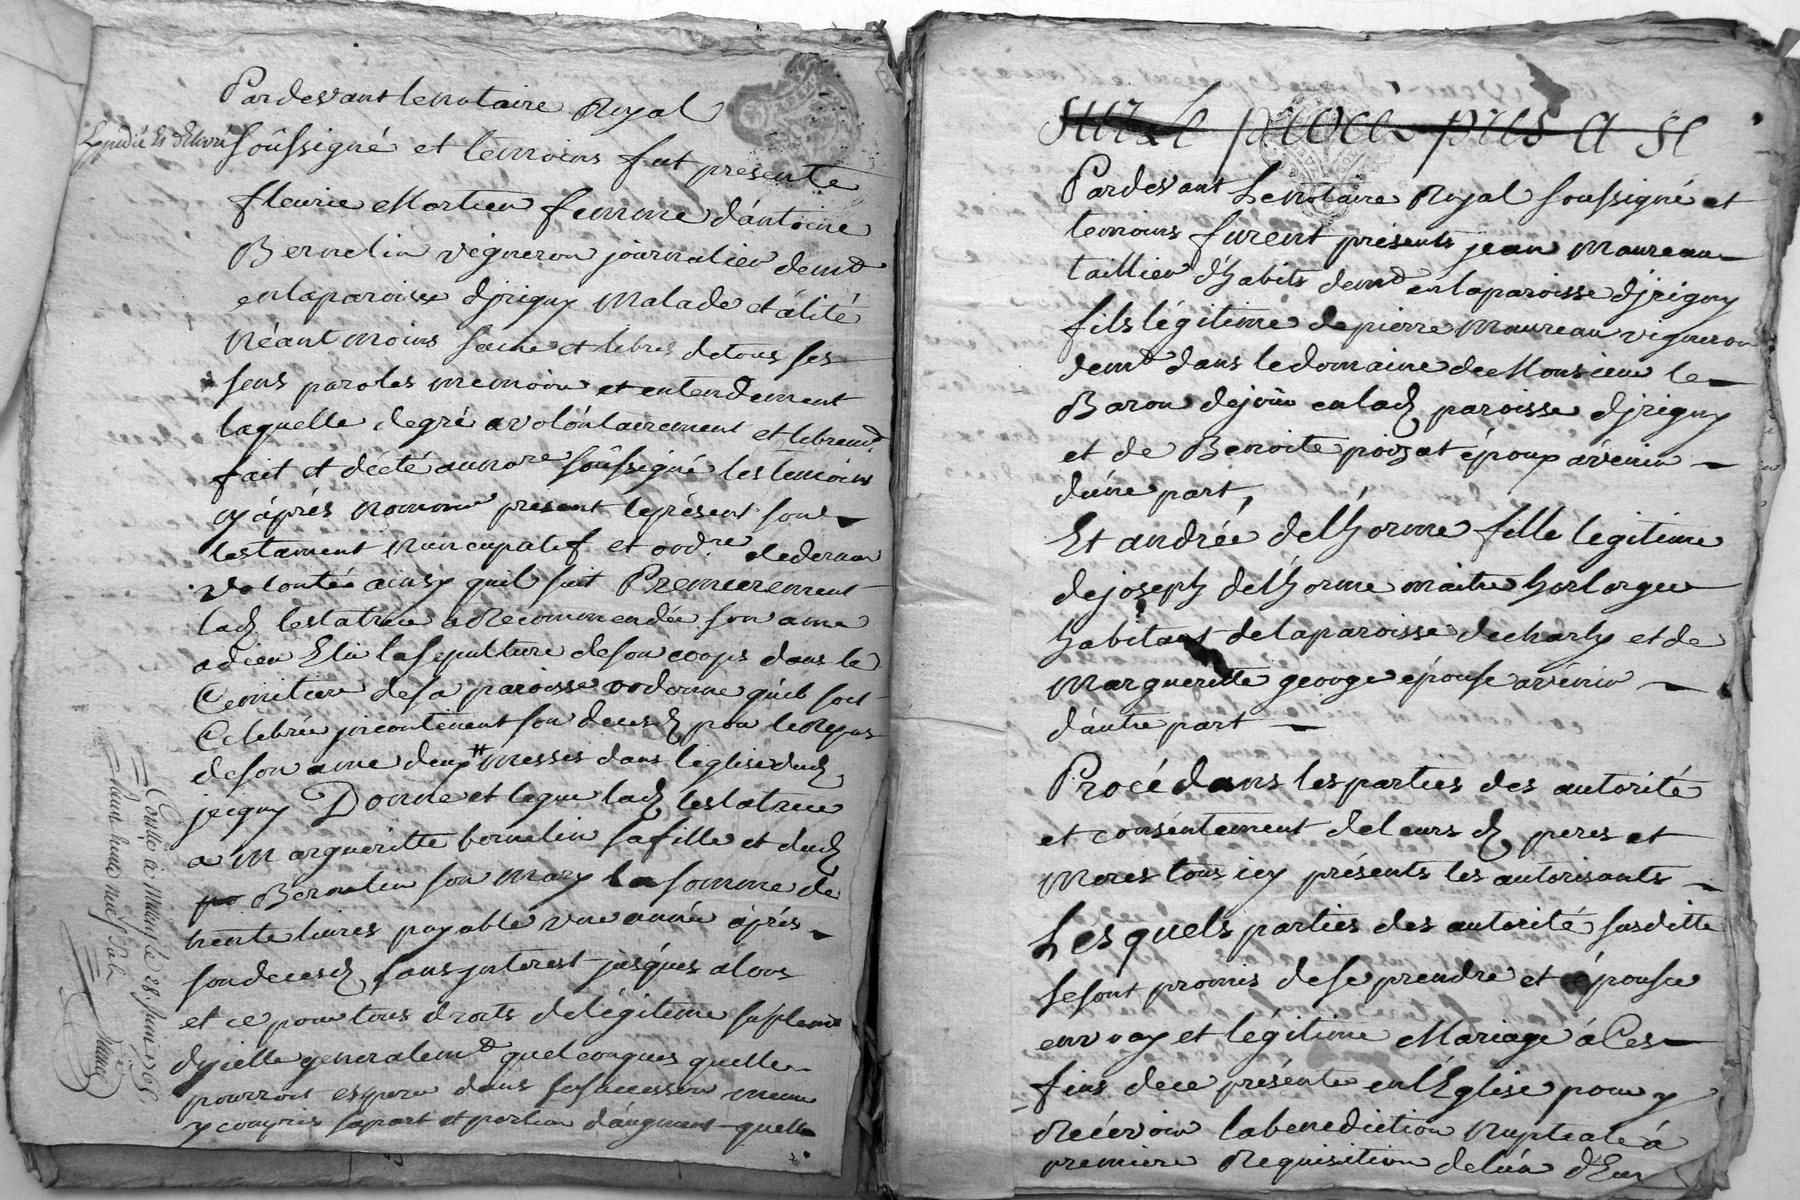 Pardevant le notaire Royal
Expedié et délivré
soûssigné et temoins fut presente
fleurie Mortier femme d'antoine
Bernelin vigneron journalier demt
en la paroisse d'jrigny Malade et àlité
Néant moins saine et libres de tous ses
sens paroles memoire et entendement
laquelle de gré a volóntairement et libremt
fait et dicté au nore soûssigné les temoins
cy âprés nommé present le présent son
testament nuncupatif et ordre de derniere
volontée ainsy quil suit Premierement
ladt testatrice à Recommendée son ame
a dieu Elû la sepulture de son corps dans le
Cemitiere de sa paroisse ordonne qu'il soit
Celebrée jncontinent son decedt pour le Repos
de son ame deux tt messes dans l'église dudt
jrigny Donne et legue ladt testatrice
a Margueritte bernelin sa fille et dudt
Bernelin son Mary la somme de
trente livres payable une année âprés
son decedt sans jnterest jusques alors
et ce pour tous droits de légitime suplemt
d'jcelle generalemt quelconques quelle
pourroit esperer dans sa succession meme
y compris sa part et portion d'augment quelle
Conlé à Millery le 28. Juin 1765
Reçu treize neuf sols
sur le procès pris a se
Pardevant Le notaire Royal soussigné et
temoins furent présents jean Maureau
taillieur d'habits demt en la paroisse d'jrigny
fils légitime de pierre Maureau vigneron
demt dans le domaine de Monsieur le
Baron de join en ladt paroisse d'jrigny
et de Benoite poizat époux avénir
d'une part,
Et andrée delhorme fille legitime
de joseph delhorme maitre horloger
habitant de la paroisse de charly et de
Margueritte george épouse avénir
d'autre part
Procédans les parties des autorité
et consentement de leurs dt peres et
meres tous icy présents les autorisants
Lesquels parties des autorité susditte
se sont promis de se prendre et épouser
en vray et légitime Mariage à Ces
fins de ce présenter en l'Eglise pour y
Récevoir la benediction Nuptiale à
premiere Requisition de lun d'Eux